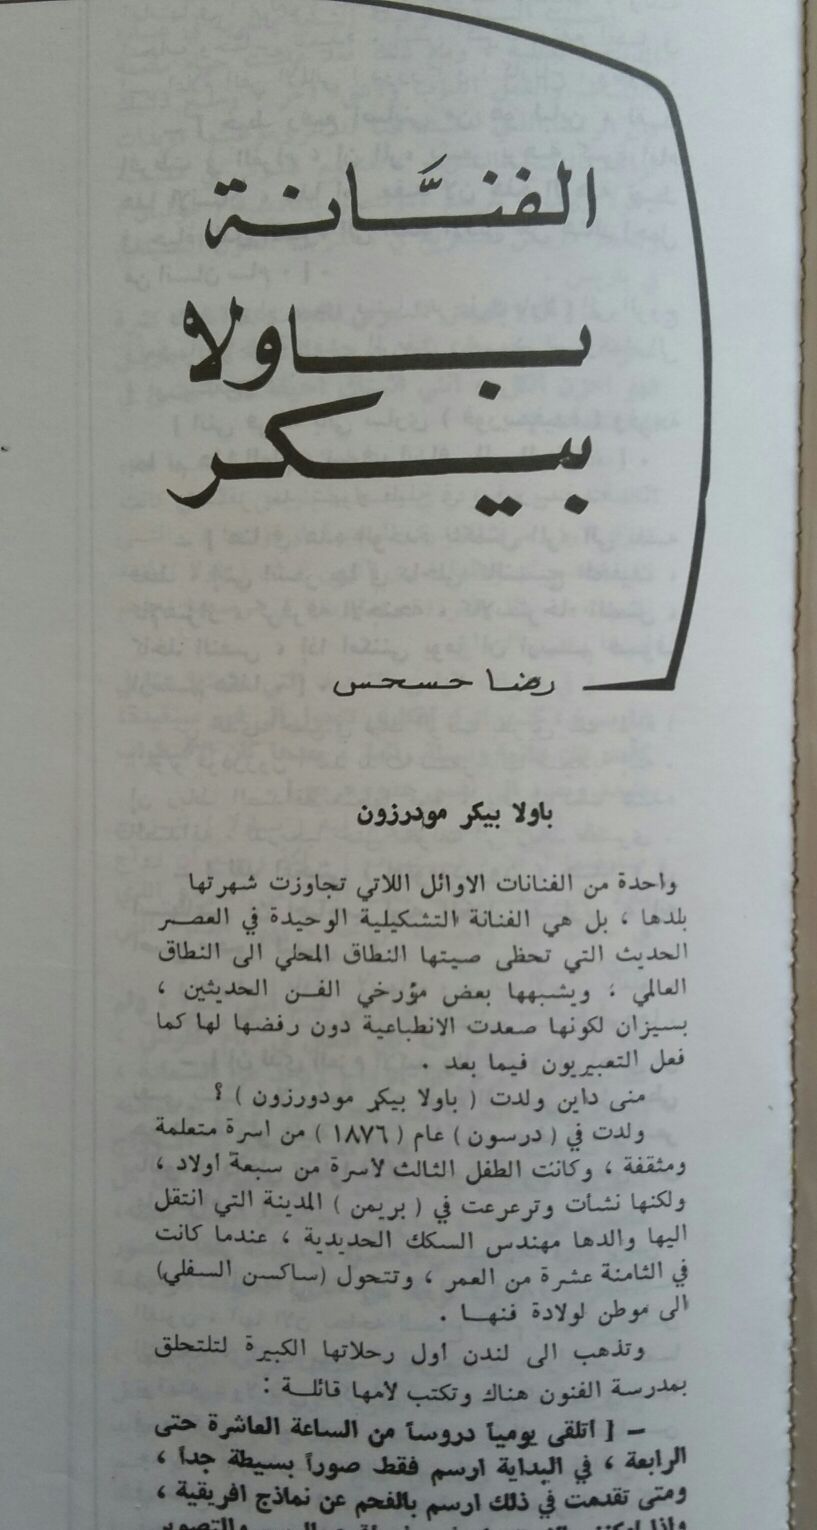 الفنَّانة
باولا
بيكر
رضا حسحس
باولا بيكر مودرزون
واحدة من الفنانات الاوائل اللاتي تجاوزت شهرتها
بلدها ، بل هي الفنانة التشكيلية الوحيدة في العصر
الحديث التي تحظى صيتها النطاق المحلي الى النطاق
العالمي ؛ ويشبهها بعض مؤرخي الفن الحديثين ،
بسيزان لكونها صعدت الانطباعية دون رفضها لها كما
فعل التعبيريون فيما بعد .
منى داين ولدت ( باولا بيكر مودورزون ) ؟
ولدت في ( درسون ) عام ( ١٨٧٦ ) من اسرة متعلمة
ومثقفة ، وكانت الطفل الثالث لاسرة من سبعة اولاد ،
ولكنها نشأت وترعرعت في ( بريمن ) المدينة التي انتقل
اليها والدها مهندس السكك الحديدية ، عندما كانت
في الثامنة عشرة من العمر ، وتتحول (ساكسن السفلي)
الى موطن لولادة فنها .
وتذهب الى لندن اول رحلاتها الكبيرة لتلتحلق
بمدرسة الفنون هناك وتكتب لامها قائلة :
– [ اتلقى يومياً دروساً من الساعة العاشرة حتى
الرابعة ، في البداية ارسم فقط صوراً بسيطة جداً ،
ومتى تقدمت في ذلك ارسم بالفحم عن نماذج افريقية ،
والتصوير